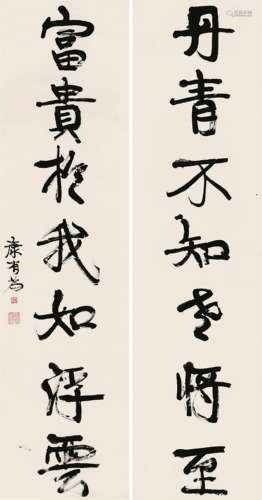 丹青不知老將至
富貴於我如浮雲
康有為